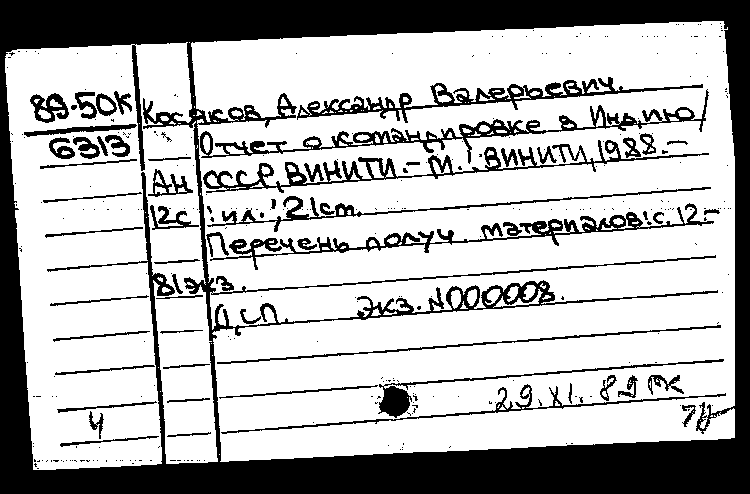 89-50К Косяков, Александр Валерьевич.
6313 Отчет о командировке в Индию /
АН СССР, ВИНИТИ. - М.: ВИНИТИ, 1988. -
12с : ил.; 21см.
Перечень получ. материалов: с. 12-
81экз.
ДСП. Экз. N000008.
29.XI.89
4